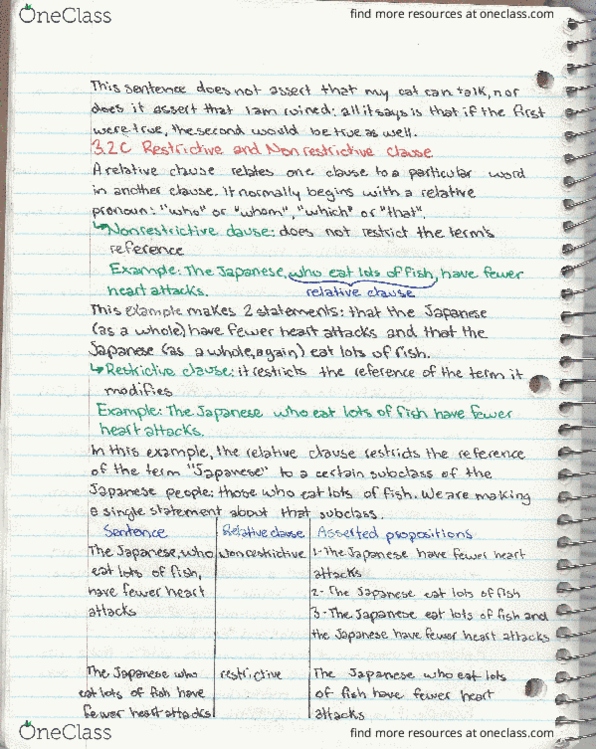 OneClass
find more resources at oneclass.com
This sentence does not assert that my cat can talk, nor
does it assert that I am ruined: all it says is that if the first
were true, the second would be true as well.
3.2C Restrictive and Nonrestrictive Clause
A relative clause relates one clause to a particular word
in another clause. It normally begins with a relative
pronoun: "who" or "whom", "which" or "that".
↳Nonrestrictive clause: does not restrict the term's
reference
Example: The Japanese, who eat lots of fish, have fewer
heart attacks. relative clause
This example makes 2 statements: that the Japanese
(as a whole) have fewer heart attacks and that the
Japanese (as a whole, again) eat lots of fish.
↳Restrictive clause: it restricts the reference of the term it
modifies
Example: The Japanese who eat lots of fish have fewer
heart attacks.
In this example, the relative clause restricts the reference
of the term "Japanese" to a certain subclass of the
Japanese people: those who eat lots of fish. We are making
a single statement about that subclass.
Sentence Relative clause Asserted propositions
The Japanese, who nonrestrictive 1-The Japanese have fewer heart
eat lots of fish, attacks
have fewer heart 2- The Japanese eat lots of fish
attacks 3-The Japanese eat lots of fish and
the Japanese have fewer heart attacks
The Japanese who restrictive The Japanese who eat lots
eat lots of fish have of fish have fewer heart
fewer heart attacks attacks
OneClass
find more resources at oneclass.com